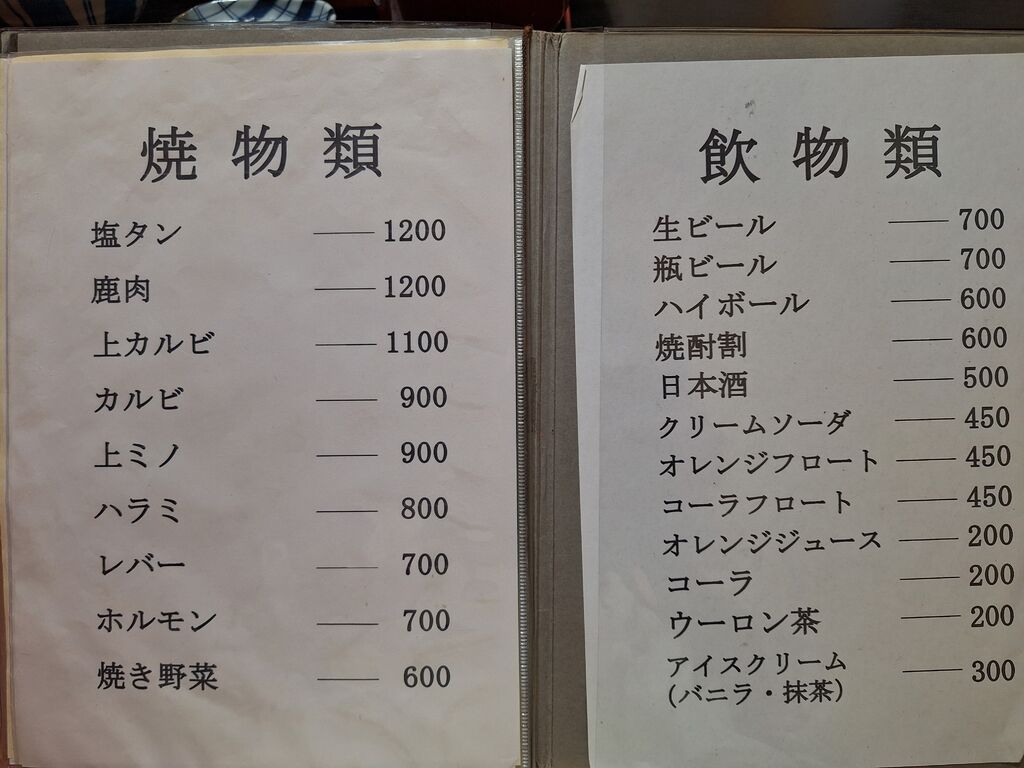 焼物類
塩タン ―― 1200
鹿肉 ―― 1200
上カルビ ―― 1100
カルビ ―― 900
上ミノ ―― 900
ハラミ ―― 800
レバー ―― 700
ホルモン ―― 700
焼き野菜 ―― 600
飲物類
生ビール ―― 700
瓶ビール ―― 700
ハイボール ―― 600
焼酎割 ―― 600
日本酒 ―― 500
クリームソーダ ―― 450
オレンジフロート ―― 450
コーラフロート ―― 450
オレンジジュース ―― 200
コーラ ―― 200
ウーロン茶 ―― 200
アイスクリーム ―― 300
（バニラ・抹茶）